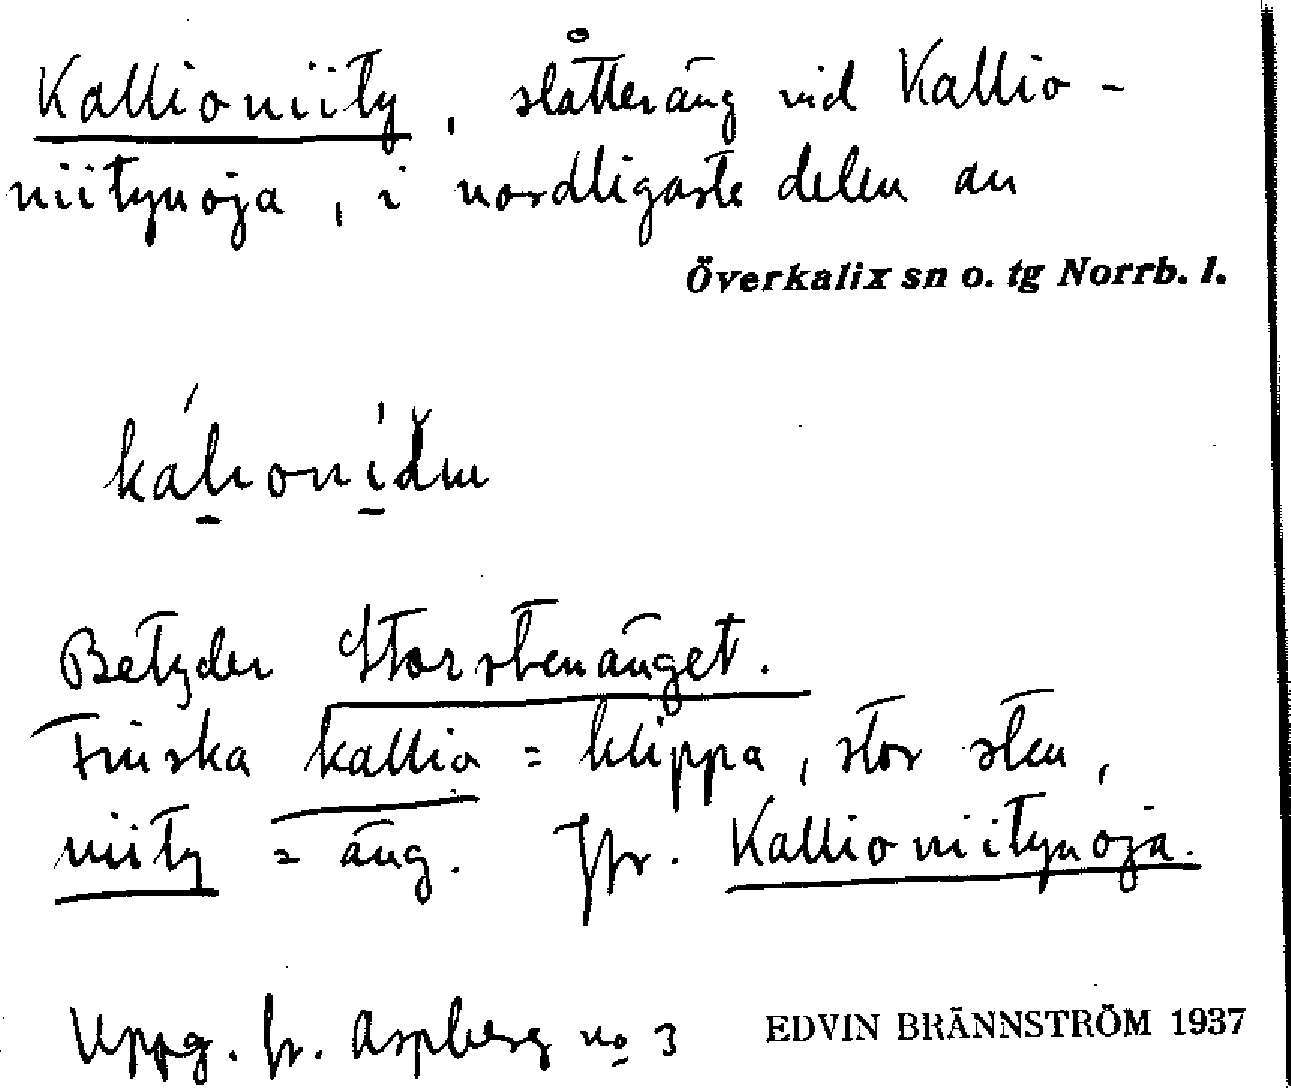 Kallioniity, slåtteräng vid Kallio-
niitynoja, i nordligaste delen av
Överkalix sn o. tg Norrb. l.
Betyder Storstenänget.
Finska kallio = klippa, stor sten,
niity = äng. Jfr. Kallioniitynoja.
Uppg. fr. Aspberg no 3
EDVIN BRÄNNSTRÖM 1937